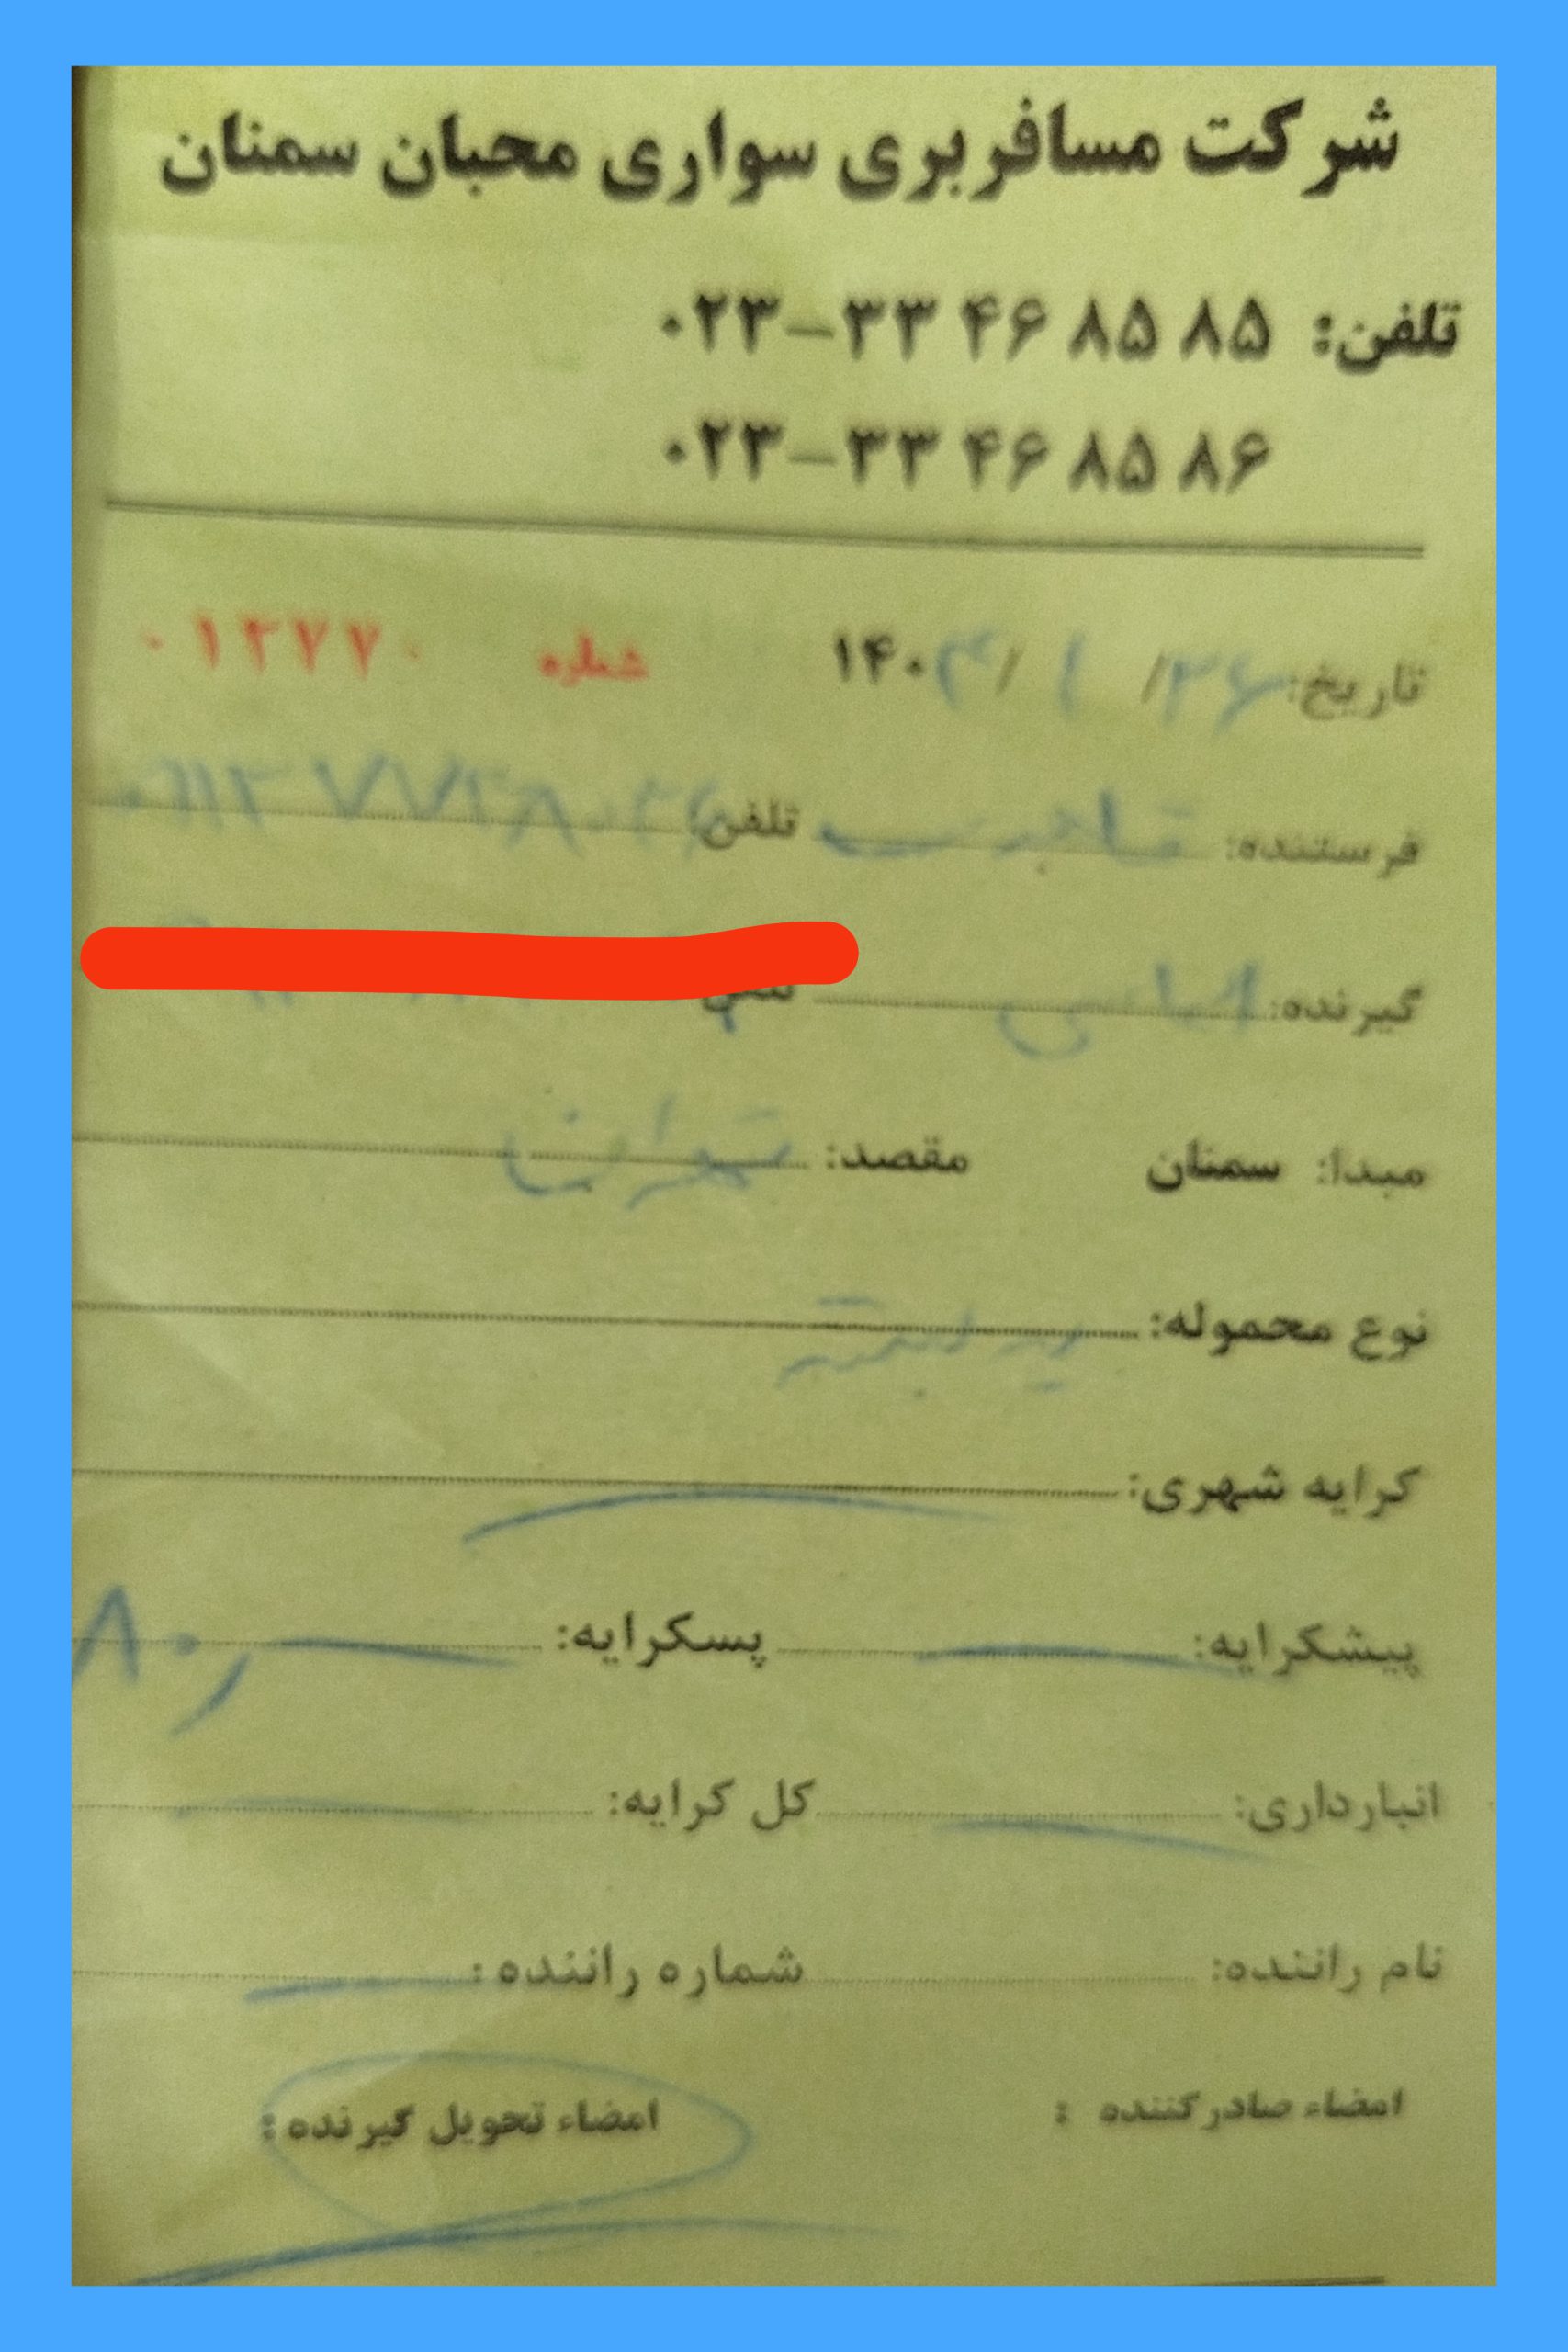 شرکت مسافربری سواری محبان سمنان
تلفن: ۰۲۳-۳۳ ۴۶ ۸۵ ۸۵
۰۲۳-۳۳ ۴۶ ۸۵ ۸۶
تاریخ: ۲۶/ ۱ /۱۴۰۳ شماره ۰۱۲۷۷۰
فرستنده: تلفن
گیرنده: تلفن
مبدا: سمنان مقصد: تهران
نوع محموله:
کرایه شهری:
پیشکرایه: پسکرایه: ۸۰٫
انبارداری: کل کرایه:
نام راننده: شماره راننده:
امضاء صادرکننده : امضاء تحویل گیرنده :